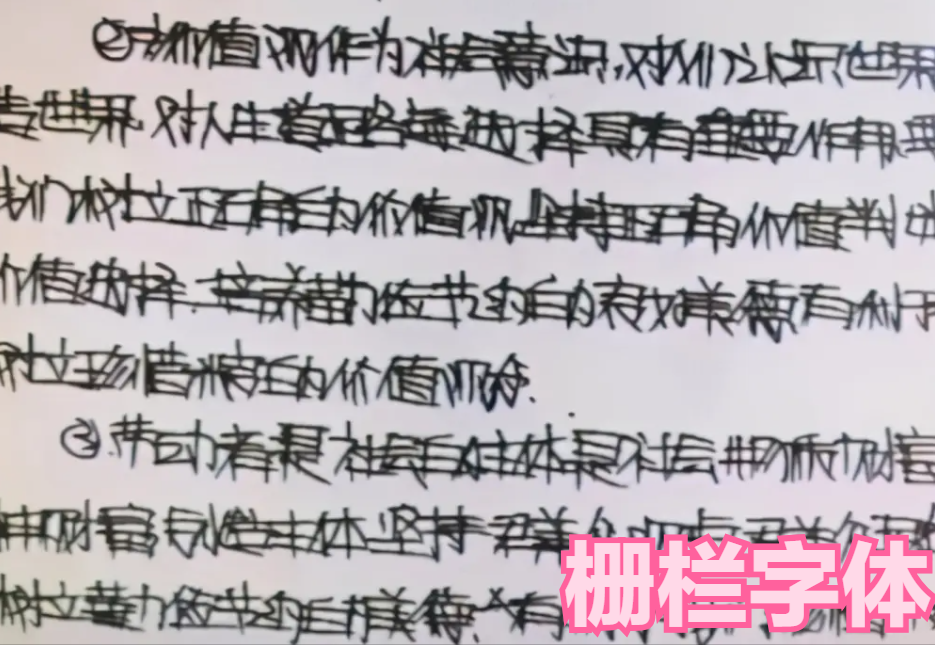 ②价值观作为社会意识,对人们认识世界
造世界,对人生道路的选择具有重要作用,要
我们树立正确的价值观,坚持正确价值判
价值选择,培养勤俭节约的美德,有利于
树立珍惜粮食的价值观念.
③劳动者是社会的主体,是社会物质财富
神财富创造主体,坚持群众观点
树立勤俭节约的美德,有
栅栏字体